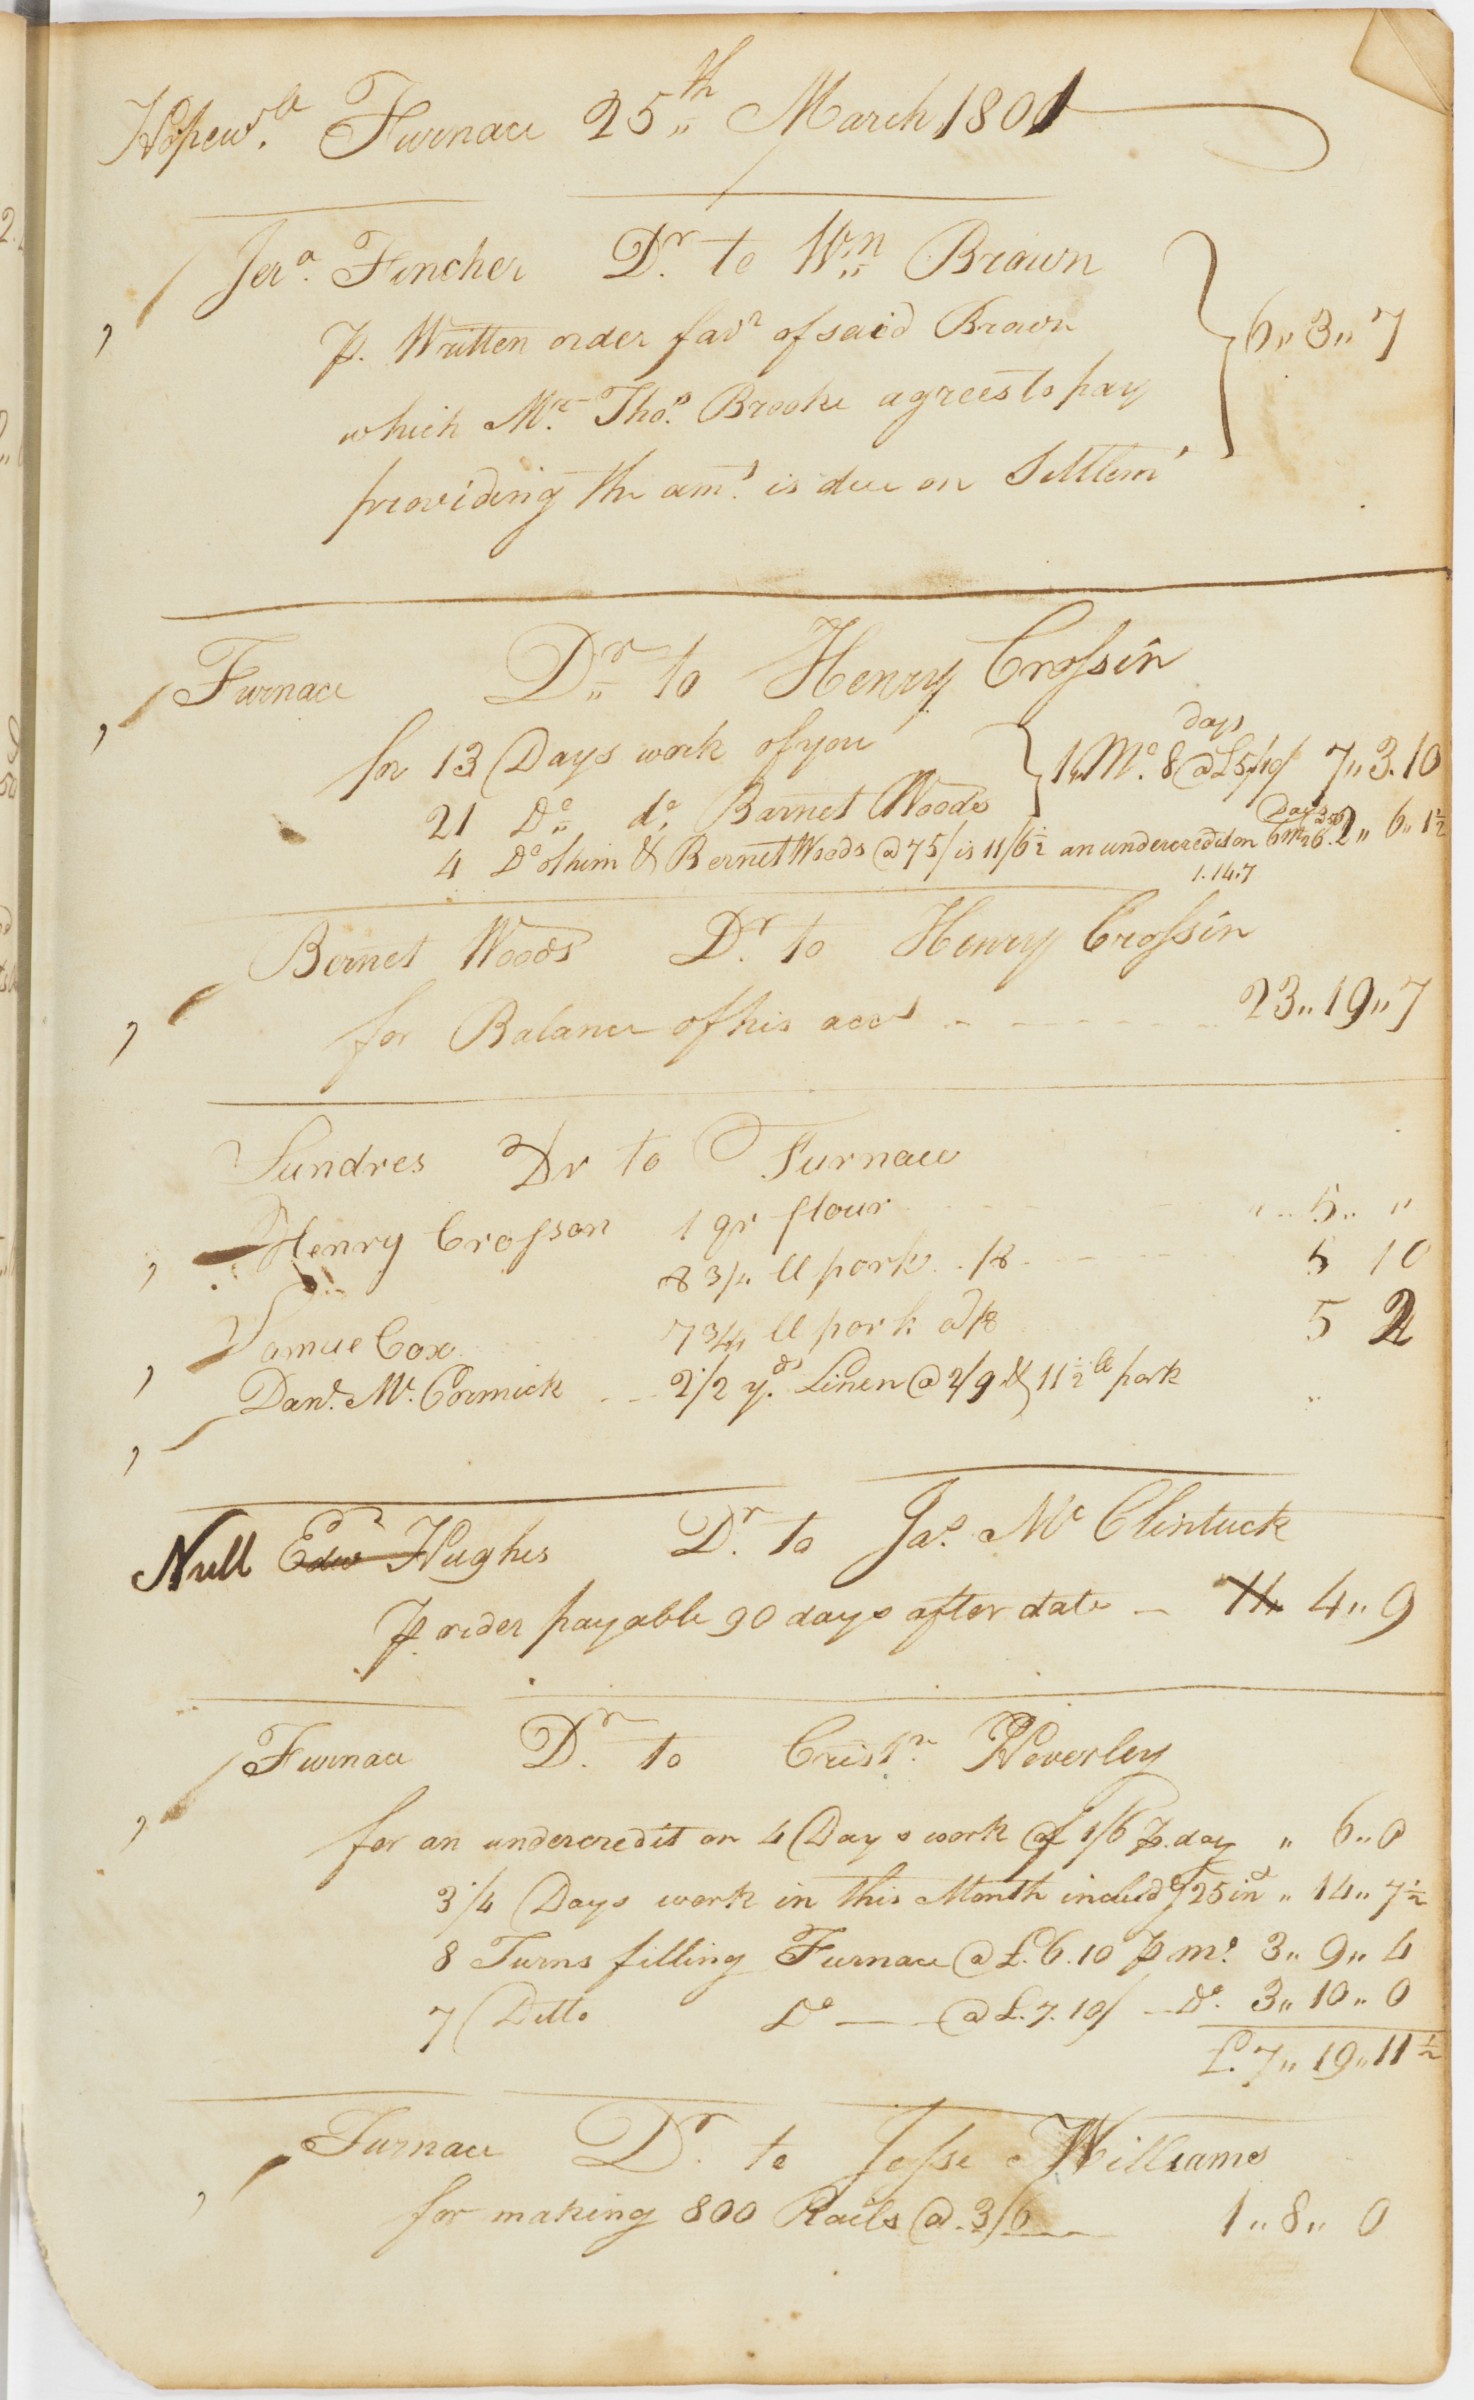 Hopew.ll Furnace 25th March 1801
Jera. Fincher Dr. to Wm Brown
p. Written order favr of said Brown
which Mr. Thos. Brooke agrees to pay 6,, 3,, 7
providing the amt. is due on Settlemt
Furnace Dr. to Henry Crossin
for 13 Days work of you
days
1 Mo. 8 @ £5/10/ 7,, 3. 10
21 Do. do. Barnet Woods
4 Do of him & Bernet Woods @ 75/ is 11/6½ an undercredit on 2,, 6,, 1½
1.14.7
Bernet Woods Dr. to Henry Crossin
for Balance of his acct 23,, 19,, 7
Sundres Dr to Furnace
Henry Crosson 1 qr flour ,, 5,, ,,
8 3/4 ll pork /8 5 10
Samue Cox 7 3/4 ll pork @ /8 5 2
Danl. Mc. Cormick 2 1/2 yds. Linen @ 2/9 & 11½ ll pork ,,
Null Edw Hughes Dr. to Jas. Mc Clintuck
p. order payable 90 days after date 4,, 9
Furnace Dr. to Cristr. Heverley
for an undercredit on 4 Days work @ 1/6 p. day ,, 6,, 0
3/4 Days work in this Month includg 25 ind ,, 14,, 7½
8 Turns filling Furnace @ £.6.10 p mo. 3,, 9,, 4
7 Ditto Do @ £.7.10/ Do. 3,, 10,, 0
£.7,, 19,, 11½
Furnace Dr. to Jesse Williams
for making 800 Rails @ 3/6 1,, 8,, 0